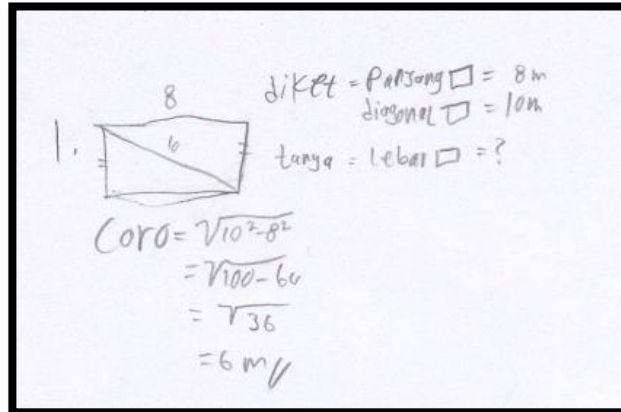 1.
8
10
diket = Panjang ▭ = 8 m
diagonal ▭ = 10 m
tanya = lebar ▭ = ?
Coro = √10²-8²
= √100-64
= √36
= 6 m //